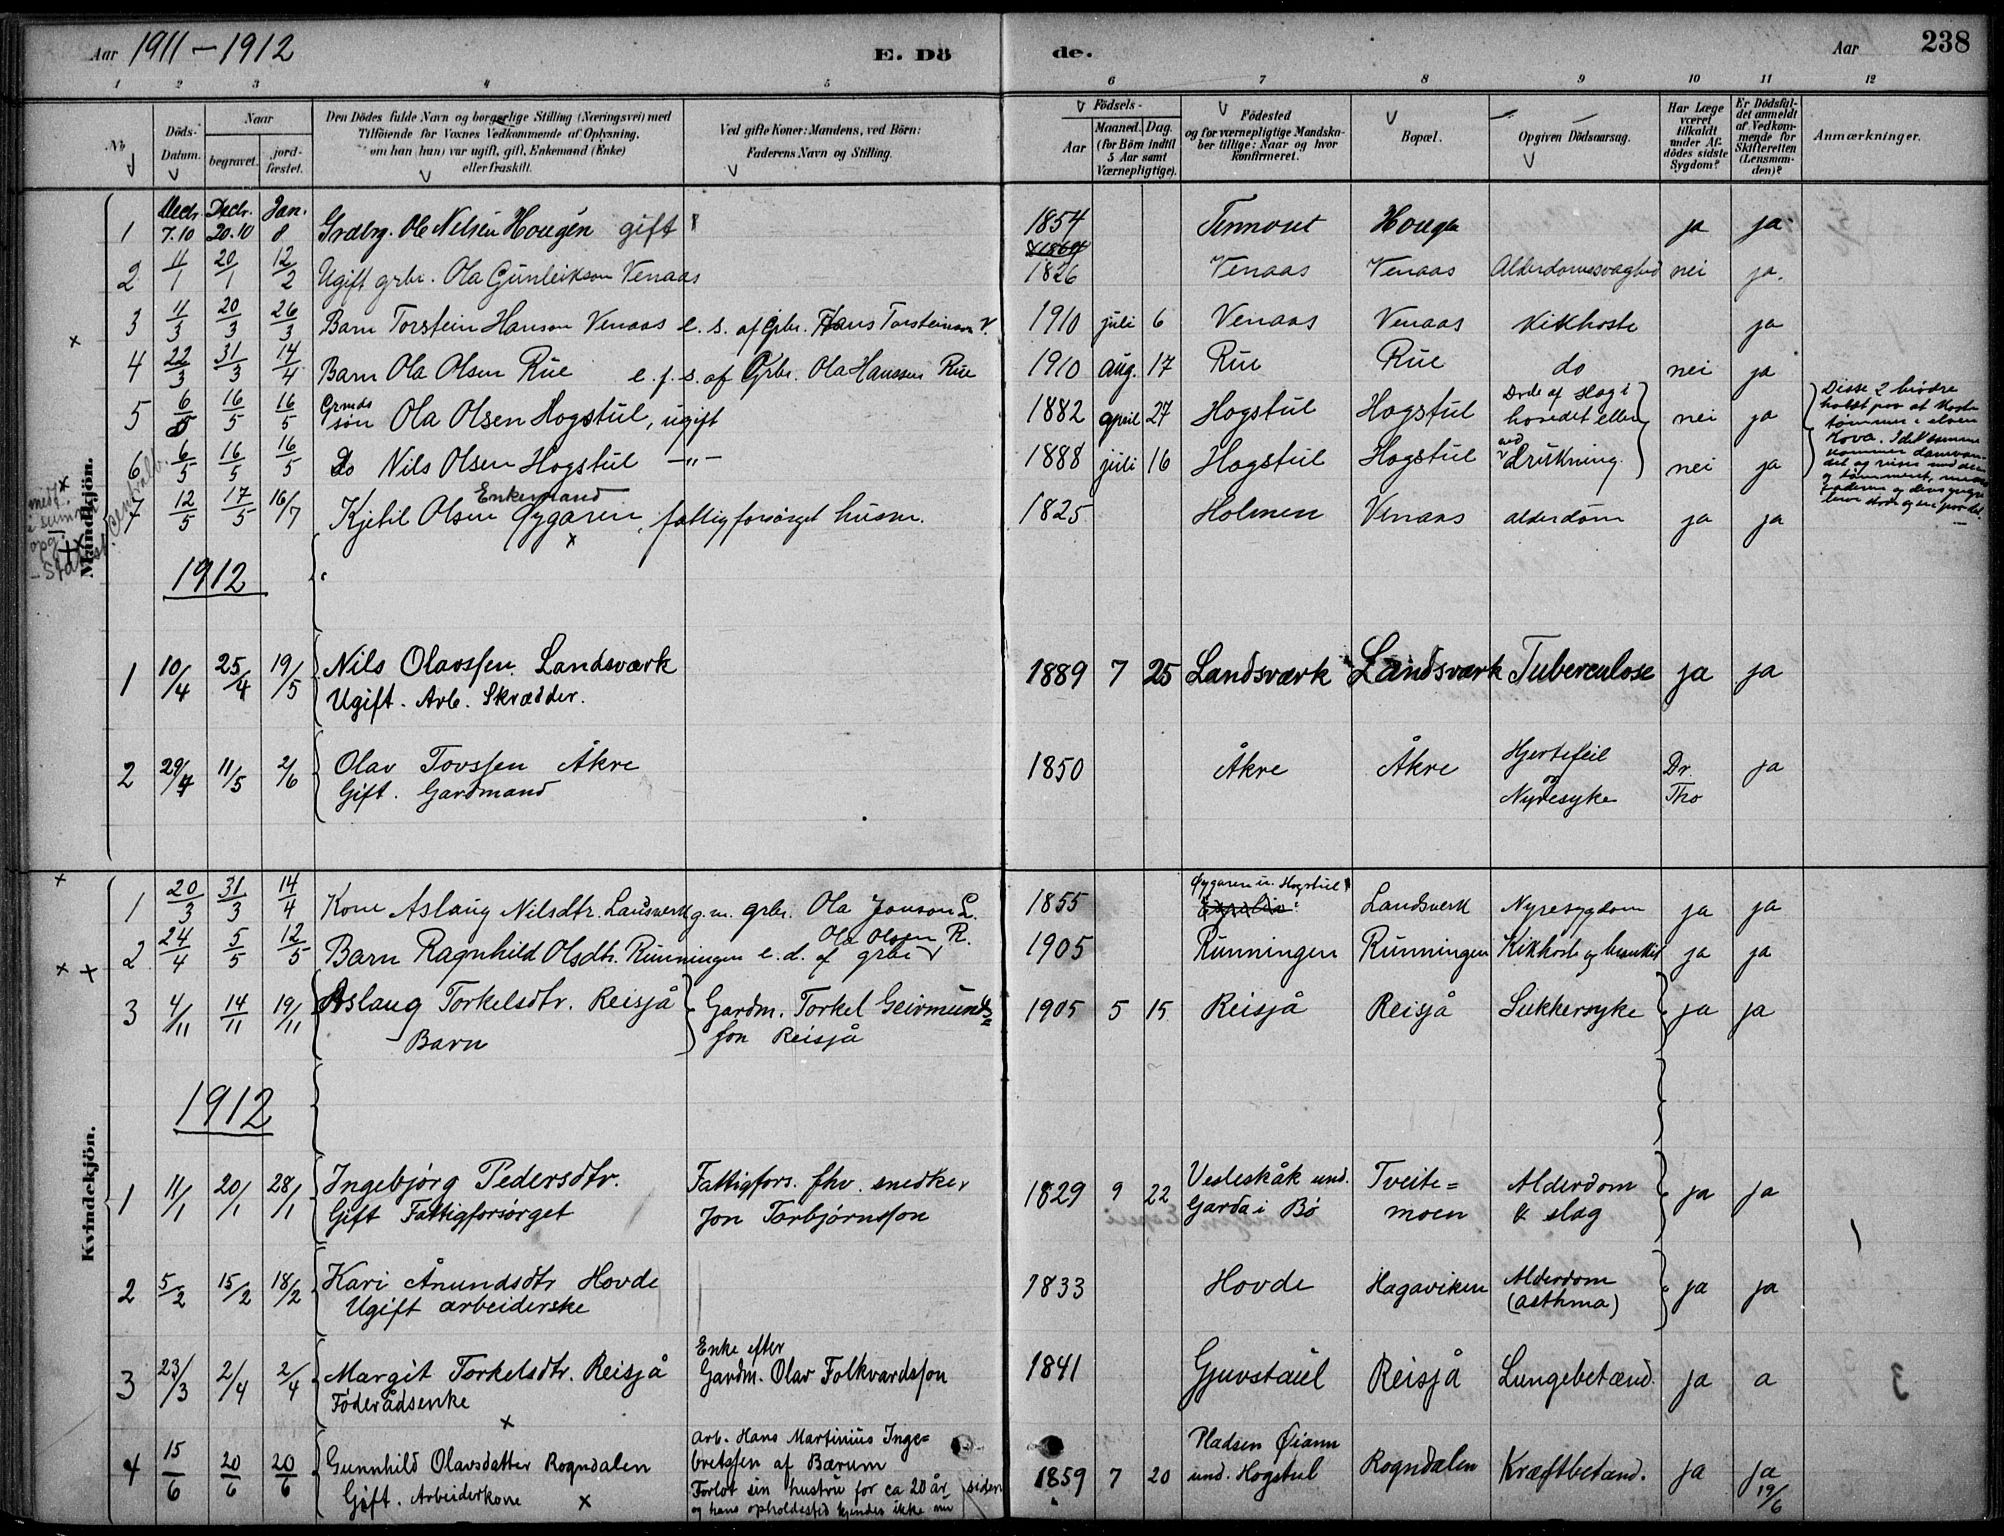 Aar 1911-1912 E. Dö de. Aar 238
1 2 3 4 5 6 7 8 9 10 11 12
No
Döds-
Datum.
Naar
begravet.
jord-
fæstet.
Den Dödes fulde Navn og borgerlige Stilling (Næringsvei) med
Tilföiende for Voxnes Vedkommende af Oplysning,
om han (hun) var ugift, gift, Enkemand (Enke)
eller fraskilt.
Ved gifte Koner: Mandens, ved Börn:
Faderens Navn og Stilling.
Födsels-
Aar
Maaned. Dag.
(for Börn indtil
5 Aar samt
Værnepligtige).
Födested
og for værnepligtige Mandska-
ber tillige: Naar og hvor
konfirmeret.
Bopæl.
Opgiven Dödsaarsag.
Har Læge
været
tilkaldt
under Af-
dödes sidste
Sygdom?
Er Dödsfal-
det anmeldt
af Vedkom-
mende for
Skifteretten
(Lensman-
den)?
Anmærkninger.
Mandkjön.
1 Decbr. 7.10 Decbr. 20.10 Jan. 8 Grdbrg. Ole Nelsen Hougen gift 1854 Tennoset Hougen ja ja.
2 11/1 20/1 12/2 Ugift grbr. Ola Gunleikson Venaas 1826 Venaas Venaas Alderdomssvaghed nei ja.
3 11/3 20/3 26/3 Barn Torstein Hanson Venaas e. s. af Grbr. Hans Torsteinson V. 1910 juli 6 Venaas Venaas Kikhoste ja
4 22/3 31/3 14/4 Barn Ola Olsen Rue e. f. s. af Grbr. Ola Hanssen Rue 1910 aug. 17 Rue Rue do nei ja
5 6/5 16/5 16/5 Grmds søn Ola Olsen Hogstul, ugift 1882 april 27 Hogstul Hogstul Døde af slag i hovedet eller nei ja
6 6/5 16/5 16/5 Do Nils Olsen Hogstul -"- 1888 juli 16 Hogstul Hogstul ved drukning. nei ja
Disse 2 brødre
holdt paa at kaste
tømmer i elven
7 12/5 17/5 16/7 Kjetil Olsen Øygaren, Enkemand fattigforsørget husm. 1825 Holmen Venaas alderdom ja ja
1912
1 10/4 25/4 19/5 Nils Olavssen Landsværk 1889 7 25 Landsværk Landsværk Tuberculose ja ja
Ugift. Arb. Skrædder.
2 29/4 11/5 2/6 Olav Tovssen Åkre 1850 Åkre Åkre Hjertefeil og Nyresyke Dr. Tho ja
Gift. Gardmand
Kvindekjön.
1 20/3 31/3 14/4 Kone Aslaug Nilsdtr. Landsverk g. m. grbr. Ola Jonson L. 1855 Øygaren u. Hogstul Landsverk Nyresygdom ja ja
2 24/4 5/5 12/5 Barn Ragnhild Olsdtr. Runningen e. d. af grbr Ola Olsen R. 1905 Runningen Runningen Kikhoste og bronkit ja ja
3 4/11 14/11 19/11 Aslaug Torkelsdtr. Reisjå Gardm. Torkel Geirmunds= 1905 5 15 Reisjå Reisjå Sukkersyke ja ja
Barn son Reisjå
1912
1 11/1 20/1 28/1 Ingebjørg Pedersdtr. Fattigfors. fhv. snedker 1829 9 22 Vesleskåk und. Tveite= Alderdom ja ja
Gift Fattigforsørget Jon Torbjørnsson Garda i Bø moen & slag
2 5/2 15/2 18/2 Kari Ånundsdtr Hovde 1833 Hovde Hagaviken Alderdom ja ja
Ugift arbeiderske (asthma)
3 23/3 2/4 2/4 Margit Torkelsdtr. Reisjå Enke efter 1841 Gjuvstaul Reisjå Lungebetænd. ja a
Føderådsenke Gardm. Olav Folkvardsson
4 15/6 20/6 20/6 Gunnhild Olavsdatter Rogndalen Arb. Hans Martinius Inge= 1859 7 20 Pladsen Øiann Rogndalen Kræftbetænd. ja ja 19/6
Gift. Arbeiderkone bretssen af Bærum und. Hogstul
Forlot sin hustru for ca 20 år siden
og hans opholdssted kjendes ikke nu